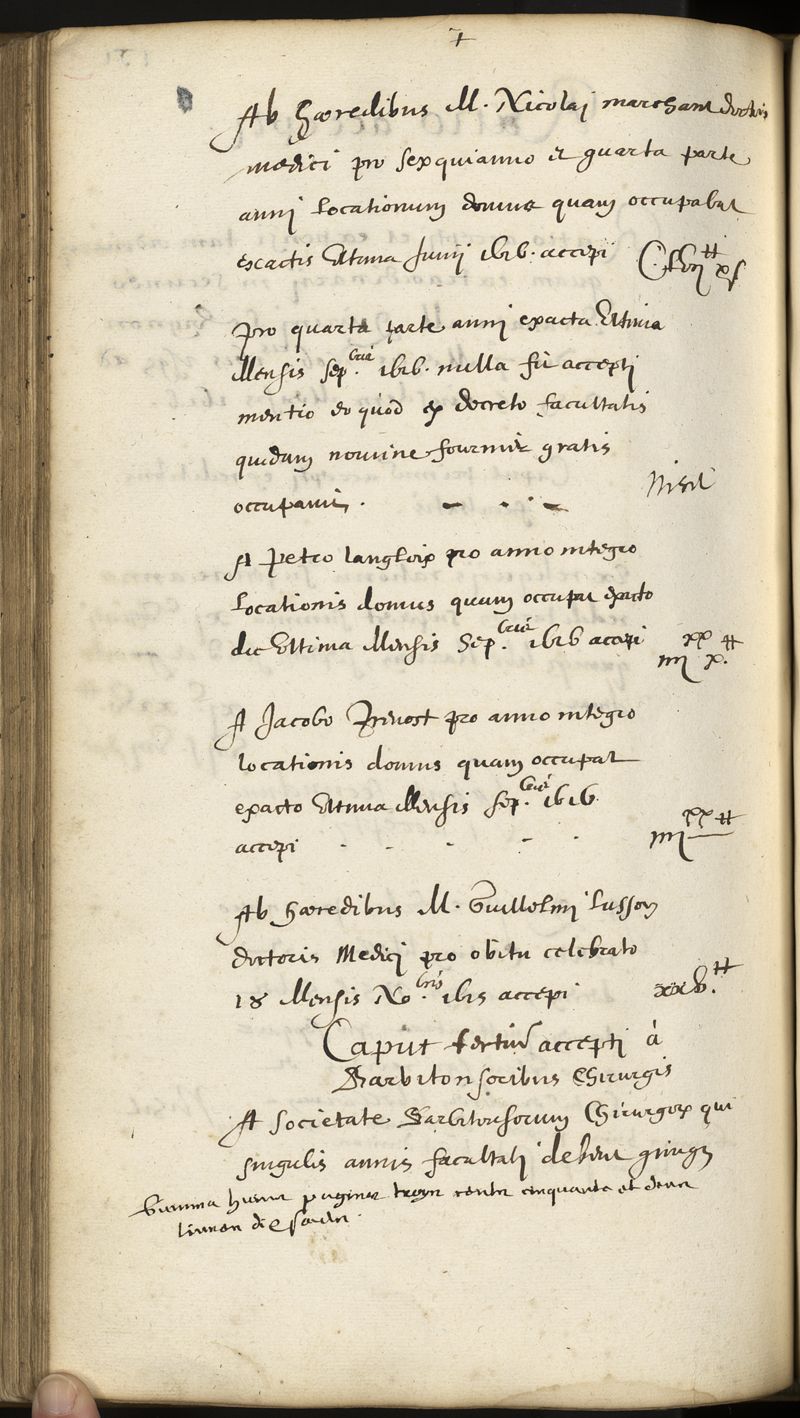 Ab hæredibus M. Nicolai marchant doctoris
medici pro sexquianno et quarta parte
anni locationum domus quam occupabat
exactis ultima Junii 1616. accepi C. lvii tt x s
pro quarta parte anni exacta ultima
Mensis Sep.bris 1616. nulla fit accepti
mentio eo quod ex decreto facultatis
quidam nomine fournier gratis
occupavit. Nihil
A Petro langloix pro anno integro
locationis domus quam occupat exacto
die ultima Mensis Sep.bris 1616 accepi iiii xx x. tt
A Jacobo Prevost pro anno integro
locationis domus quam occupat
exacto ultima Mensis Sep.bris 1616
accepi iiii xx tt
Ab hæredibus M. Guillelmi lusson
doctoris Medici pro obitu celebrato
18 Mensis No.bris 1615 accepi xxv. tt
Caput tertiū accepti à
Barbitonsoribus Chirurgis
A societate Barbitonsorum Chirurgorum qui
singulis annis facultati debent
Summa huius paginæ troys cents cinquante et deux
livres di solz